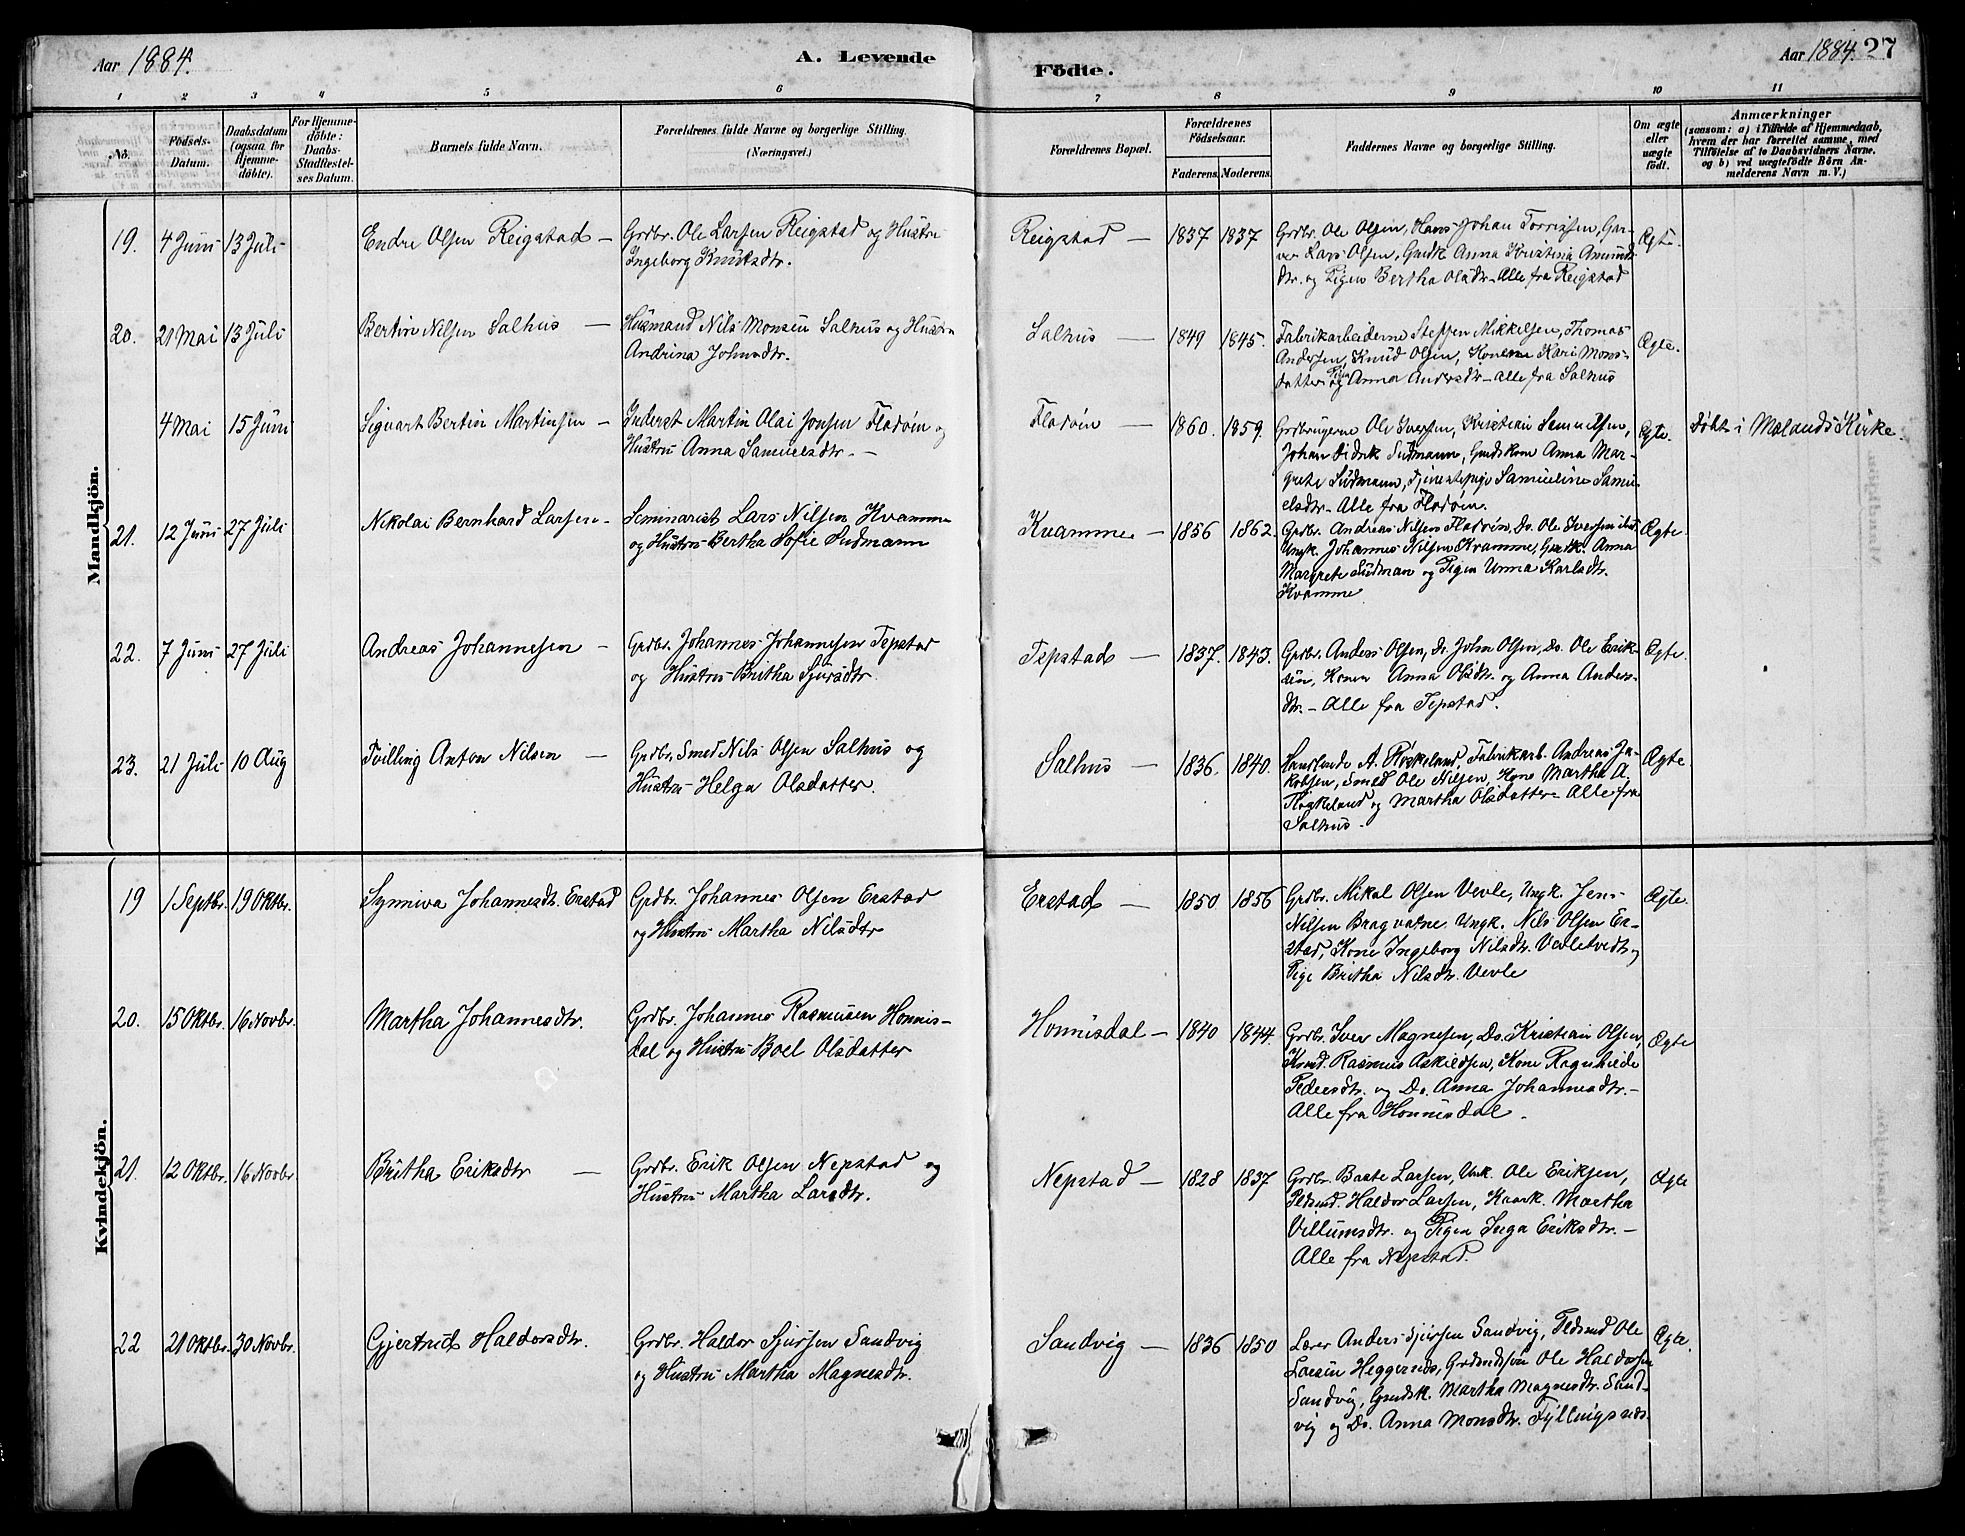 Aar 1884.
A. Levende
Födte.
Aar 1884. 27
1 2 3 4 5 6 7 8 9 10 11
No.
Födsels-
Datum.
Daabsdatum
(ogsaa for
Hjemme-
döbte).
For Hjemme-
döbte:
Daabs-
Stadfæstel-
ses Datum.
Barnets fulde Navn.
Forældrenes fulde Navne og borgerlige Stilling.
(Næringsvei.)
Forældrenes Bopæl.
Forældrenes
Födselsaar.
Faderens. Moderens.
Faddernes Navne og borgerlige Stilling.
Om ægte
eller
uægte
födt.
Anmærkninger
(saasom: a) i Tilfælde af Hjemmedaab,
hvem der har forrettet samme, med
Tilföielse af to Daabsvidners Navne,
og b) ved uægtefödte Börn An-
melderens Navn m. V.)
Mandkjön.
19. 4 Juni 13 Juli Endre Olsen Reigstad — Grdbr. Ole Larsen Reigstad og Hustru
Ingeborg Knutsdtr.
Reigstad — 1837 1837 Grdbr. Ole Olsen, Hans Johan Torrissen, Gar-
ver Lars Olsen, Grdk Anna Kristina Amunds
dtr. og Pigen Bertha Olsdtr – Alle fra Reigstad
Ægte.
20. 21 Mai 13 Juli Bertin Nilsen Salhus — Husmand Nils Monsen Salhus og Hustru
Andrina Johnsdtr.
Salhus — 1849 1845. Fabrikarbeiderne Steffen Mikkelsen, Thomas
Andersen, Knud Olsen, Konerne Kari Mons-
datter og Pigen Anna Andersdtr – alle fra Salhus
Ægte.
4 Mai 15 Juni Sigvart Bertin Martinsen — Inderst Martin Olai Jonsen Flatöen og
Hustru Anna Samuelsdtr. —
Flatöen — 1860. 1859. Grdbrugerne Ole Iversen, Kristian Samuelsen,
Johan Didrik Sudmann, Grdskone Anna Mar-
grete Sudmann, Tjenestepige Samueline Samu-
elsdtr – Alle fra Flatöen.
Ægte. Döbt i Mælands Kirke.
21. 12 Juni 27 Juli Nikolai Bernhard Larsen — Seminarist Lars Nilsen Kvamme
og Hustru Bertha Sofie Sudmann
Kvamme — 1856 1862. Grdbr. Andreas Nilsen Flatöen, Do. Ole Iversen ibid.
Ungk. Johannes Nilsen Kvamme, Grdk. Anna
Margrete Sudman og Pigen Unna Karlsdtr.
Kvamme
Ægte.
22. 7 Juni 27 Juli Andreas Johannesen — Grdbr. Johannes Johannesen Tepstad
og Hustru Britha Sjursdtr.
Tepstad — 1837. 1843. Grdbr. Anders Olsen, Do. John Olsen, Do. Ole Erik-
sen, Konen Anna Olsdtr. og Anna Anders-
dtr. – Alle fra Tepstad.
Ægte.
23. 21 Juli 10 Aug Tvilling Anton Nilsen — Grdbr. Smed Nils Olsen Salhus og
Hustru Helga Olsdatter.
Salhus — 1836. 1840. Handlende A. Röskeland, Fabrikarb. Andreas Ja-
kobsen, Smed Ole Nilsen, Kone Martha A.
Röskeland og Martha Olsdatter – Alle fra
Salhus.
Ægte.
Kvindekjön.
19 1 Septbr. 19 Oktbr. Synniva Johannesdtr. Erstad Grdbr. Johannes Olsen Erstad
og Hustru Martha Nilsdtr
Erstad — 1850 1856 Grdbr. Mikal Olsen Vevle, Ungk. Jens
Nilsen Bragvatne. Ungk. Nils Olsen Er-
stad, Kone Ingeborg Nilsdtr. Vevletvedt og
Pige Britha Nilsdtr. Vevle
Ægte.
20. 15 Oktbr. 16 Novbr. Martha Johannesdtr. Grdbr. Johannes Rasmusen Honnis-
dal og Hustru Boel Olsdatter
Honnisdal — 1840 1844. Grdbr. Iver Magnesen, Do. Kristian Olsen,
Husmd. Rasmus Askildsen, Kone Ragnhilde
Pedersdtr. og Do. Anna Johannesdtr. –
Alle fra Honnisdal.
Ægte
21. 12 Oktbr. 16 Novbr. Britha Eriksdtr — Grdbr. Erik Olsen Nepstad og
Hustru Martha Larsdtr.
Nepstad — 1828 1837 Grdbr. Baste Larsen, Unk. Ole Eriksen,
Pldsmd. Haldor Larsen, Kaark. Martha
Villumsdtr. og Pigen Inga Eriksdtr. –
Alle fra Nepstad.
Ægte
22 21 Oktbr. 30 Novbr. Gjertrud Haldorsdtr. Grdbr. Haldor Sjursen Sandvig
og Hustru Martha Magnesdtr.
Sandvig — 1836 1850 Lærer Anders Sjursen Sandvig, Pldsmd Ole
Larsen Heggernes, Grdmdssön Ole Haldorsen
Sandvig, Grdsk. Martha Magnesdtr. Sand-
vig og Do. Anna Monsdtr. Fyllingsnes.
Ægte.